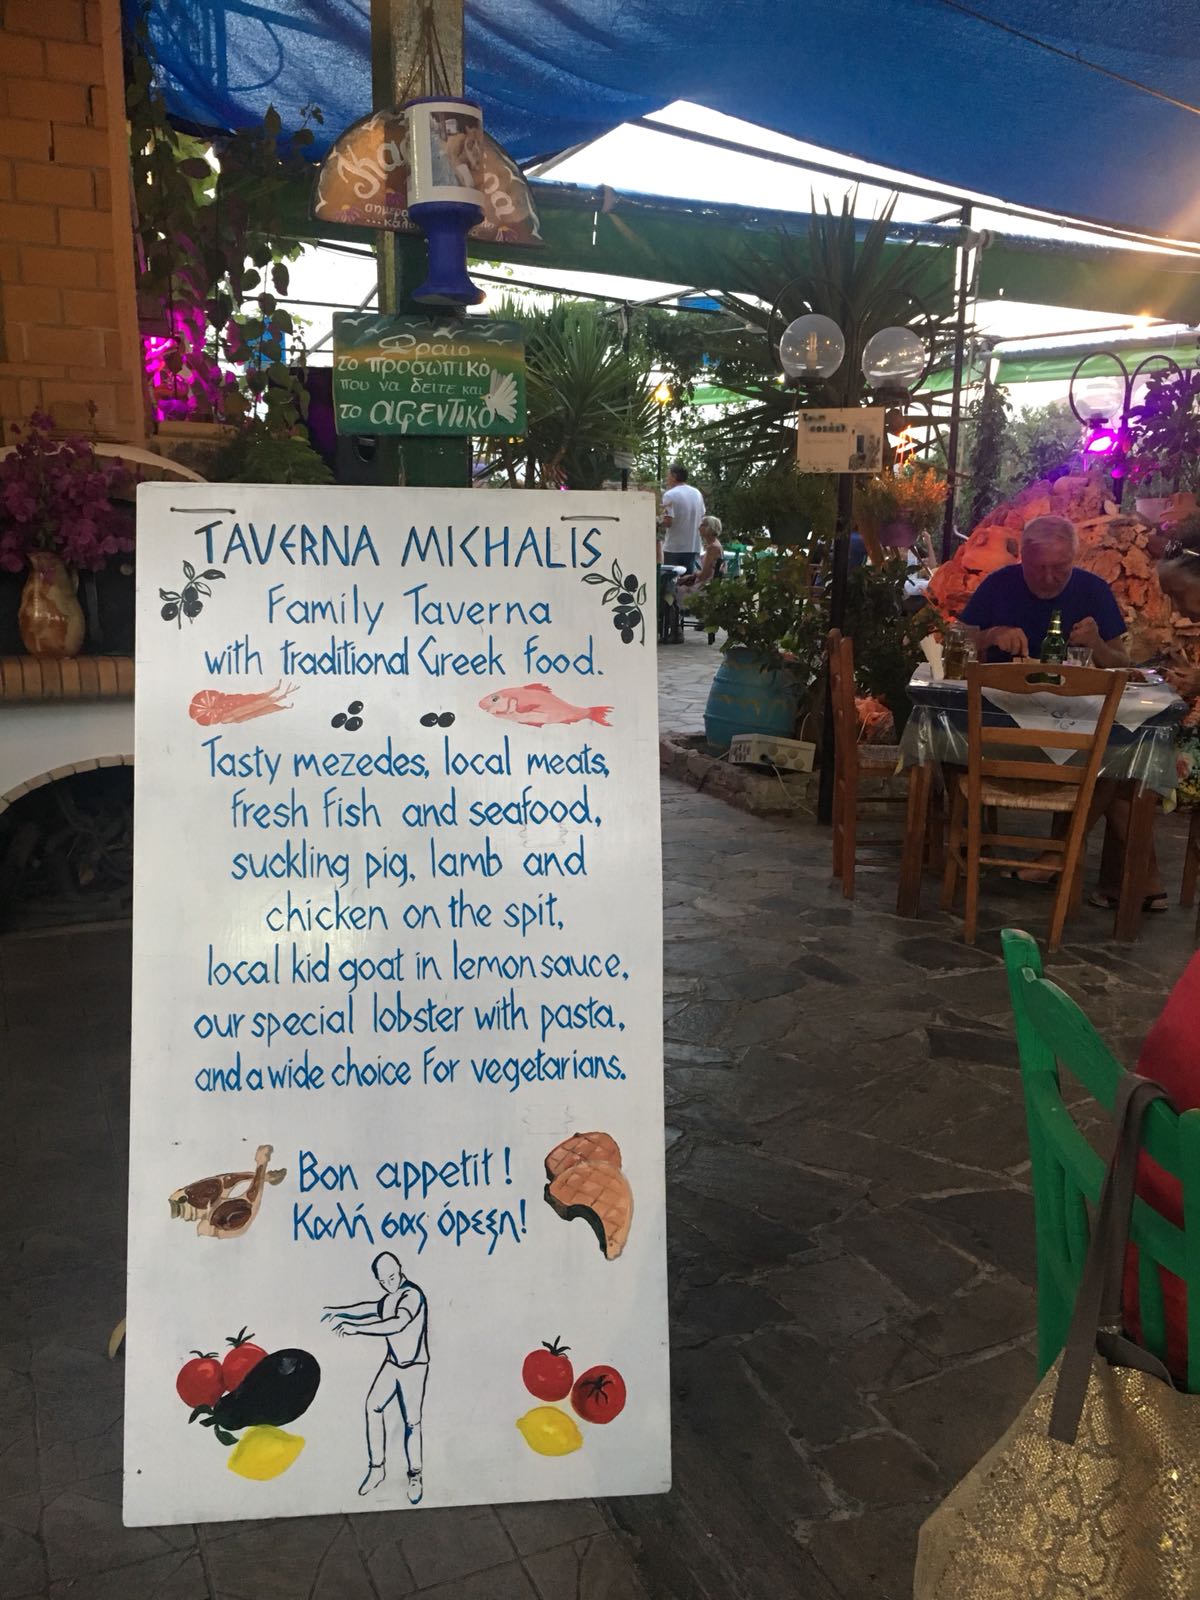 σημερα
Ωραιο
το προσωπικό
που να δειτε και
το αφεντικό
TAVERNA MICHALIS
Family Taverna
with traditional Greek food.
Tasty mezedes, local meats,
fresh fish and seafood,
suckling pig, lamb and
chicken on the spit,
local kid goat in lemon sauce,
our special lobster with pasta,
and a wide choice for vegetarians.
Bon appetit!
Καλή σας όρεξη!